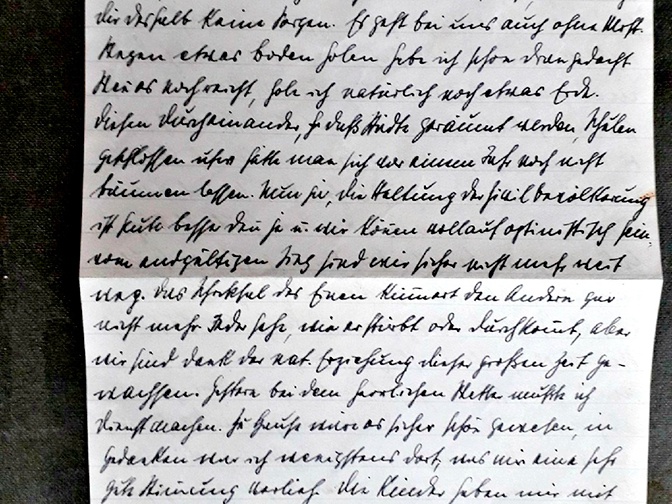 dir deshalb keine Sorgen. Es geht bei uns auch ohne Most.
Wegen etwas boden holen habe ich schon dran gedacht
Wenn es noch reicht, hole ich natürlich noch etwas Erde.
Diesen Durcheinander, so daß Städte geräumt werden, Schulen
geschlossen usw hätte man sich vor einem Jahr noch nicht
träumen lassen. Nun ja, die Haltung der Zivil bevölkerung
ist heute besser den je u. wir können vollauf optimistisch sein.
vom endgültigen Sieg sind wir sicher nicht mehr weit
weg. Das Schicksal des Einen kümert den Andern gar
nicht mehr Jeder sehe, wie er stirbt oder durchkomt, aber
wir sind dank der nat. Erziehung dieser großen Zeit ge-
wachsen. Gestern bei dem herrlichen Wetter mußte ich
Dienst machen. Zu Hause wäre es sicher schön gewesen, in
Gedanken war ich wenigstens dort, was mir eine sehr
gute Stimmung verlieh. Die Kinder haben mir mit